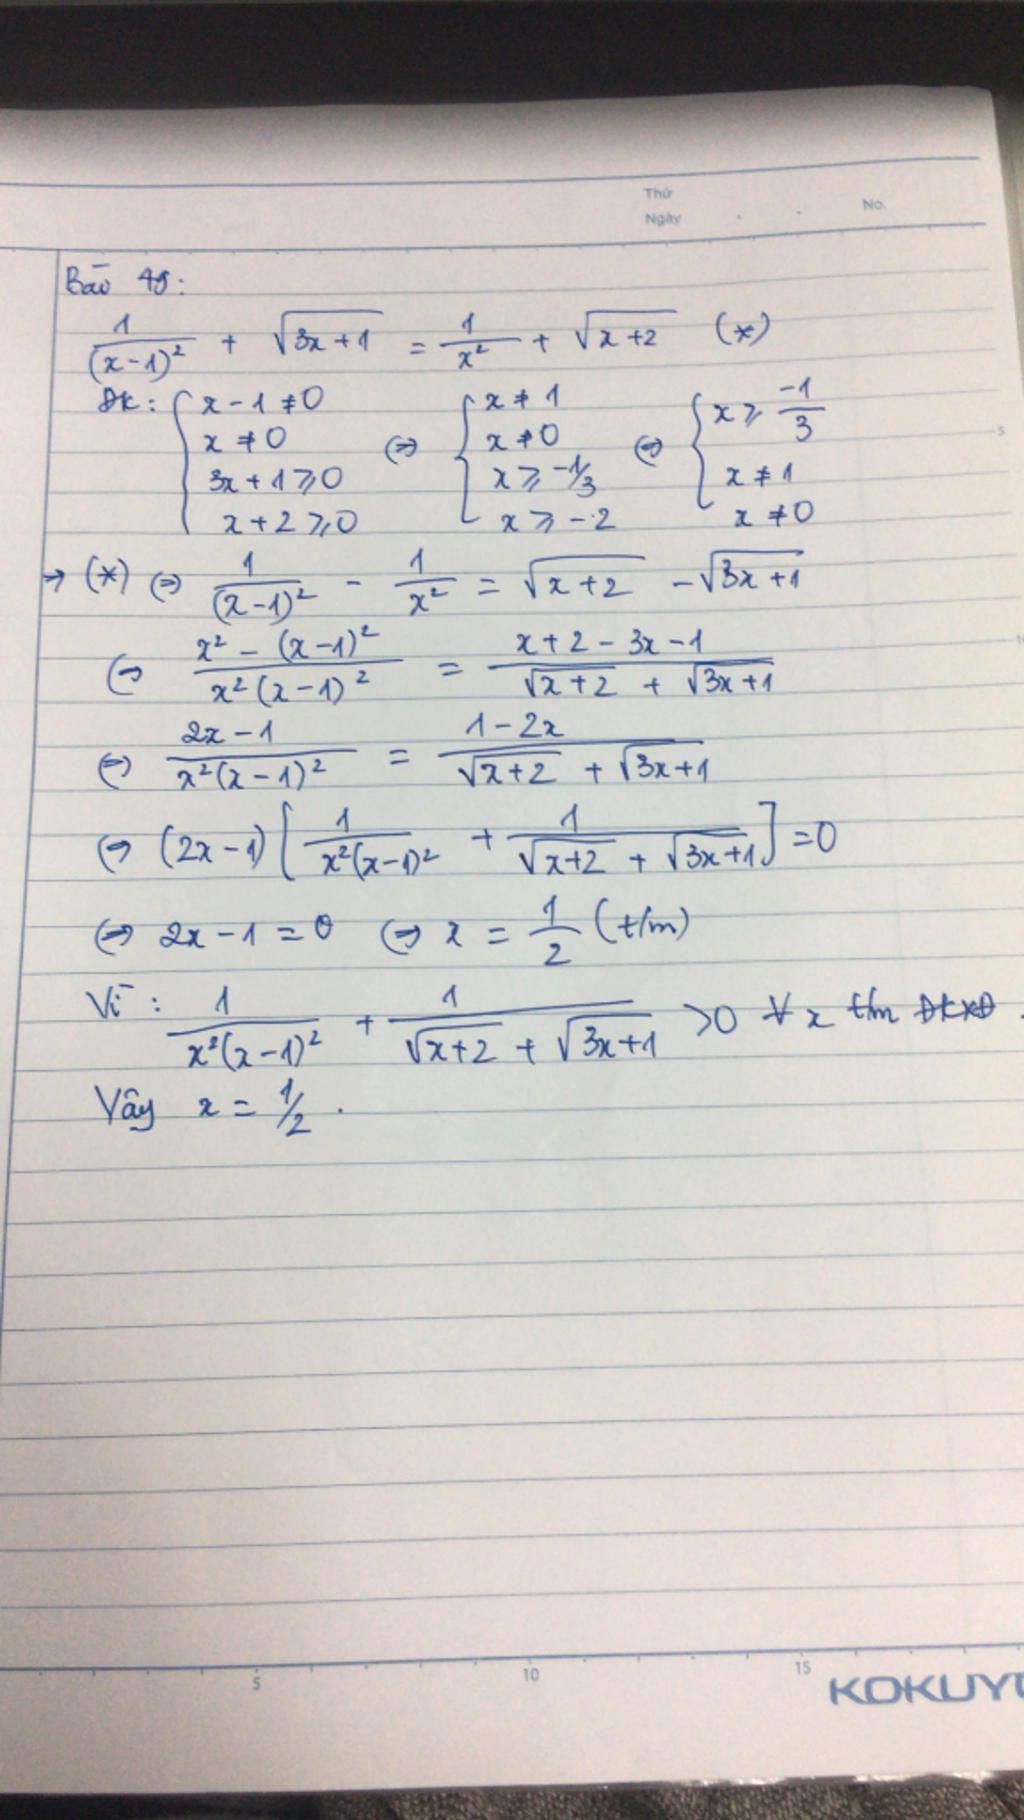 Thứ
Ngày . . No.
Bài 48:
1/(x-1)² + √(3x+1) = 1/x² + √(x+2) (*)
ĐK: { x-1≠0 ; x≠0 ; 3x+1⩾0 ; x+2⩾0 ⇔ { x≠1 ; x≠0 ; x⩾-1/3 ; x⩾-2 ⇔ { x⩾ -1/3 ; x≠1 ; x≠0
→ (*) ⇔ 1/(x-1)² - 1/x² = √(x+2) - √(3x+1)
⇔ (x² - (x-1)²)/(x²(x-1)²) = (x+2-3x-1)/(√(x+2) + √(3x+1))
⇔ (2x-1)/(x²(x-1)²) = (1-2x)/(√(x+2) + √(3x+1))
⇔ (2x-1)[1/(x²(x-1)²) + 1/(√(x+2) + √(3x+1))] =0
⇔ 2x-1=0 ⇔ x = 1/2 (t/m)
Vì: 1/(x²(x-1)²) + 1/(√(x+2) + √(3x+1)) >0 ∀x t/m ĐKXĐ.
Vậy x = 1/2.
5 10 15
KOKUYO